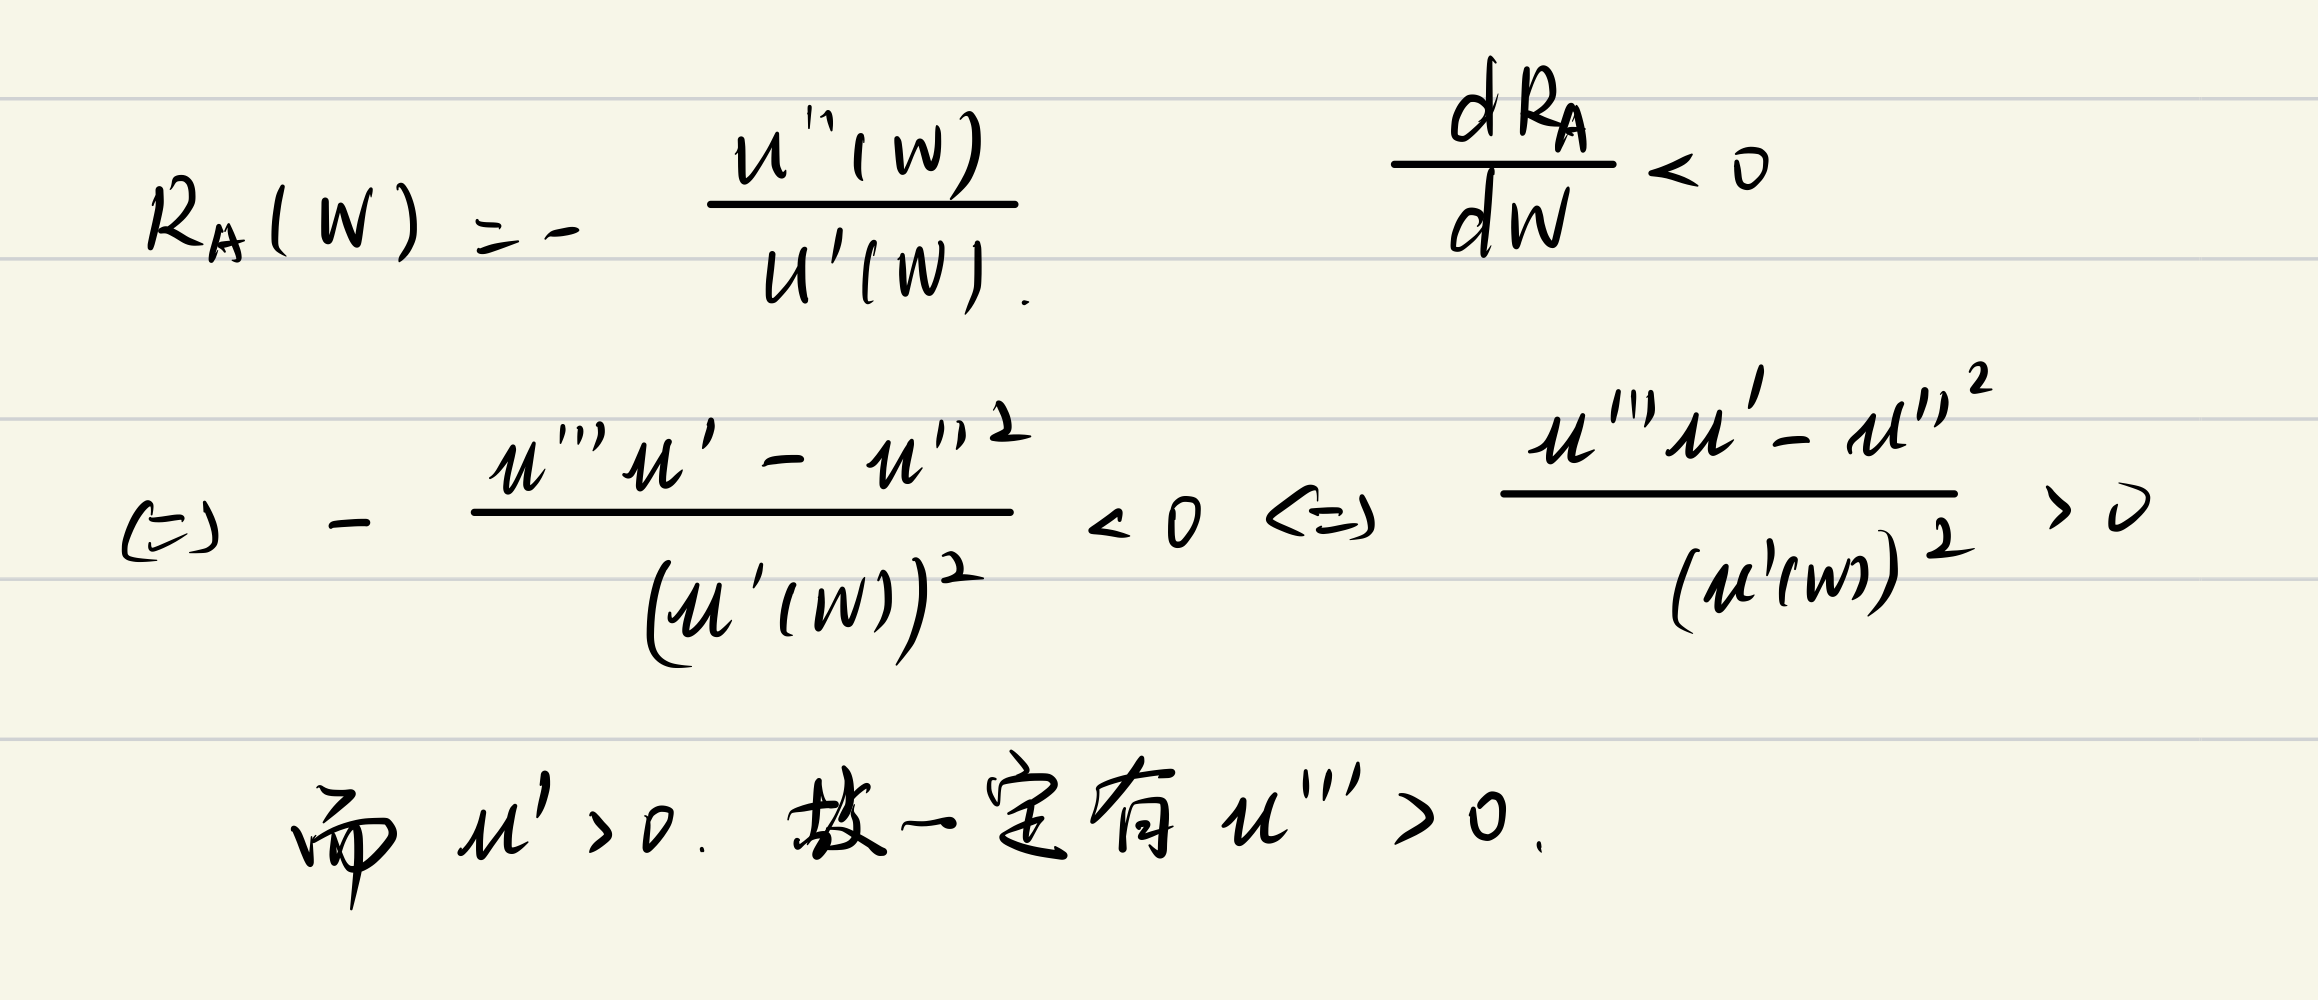 R_A(W) = - \frac{u''(W)}{u'(W)}. \frac{dR_A}{dW} < 0
<=> - \frac{u'''u' - u''^2}{(u'(W))^2} < 0 <=> \frac{u'''u' - u''^2}{(u'(W))^2} > 0
而 u' > 0. 故一定有 u''' > 0.